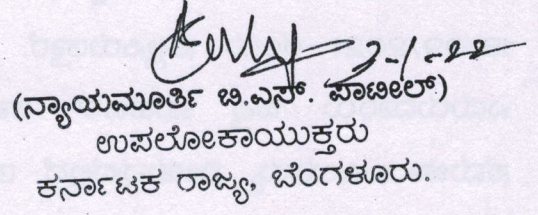 3-1-22
(ನ್ಯಾಯಮೂರ್ತಿ ಬಿ.ಎಸ್. ಪಾಟೀಲ್)
ಉಪಲೋಕಾಯುಕ್ತರು
ಕರ್ನಾಟಕ ರಾಜ್ಯ, ಬೆಂಗಳೂರು.